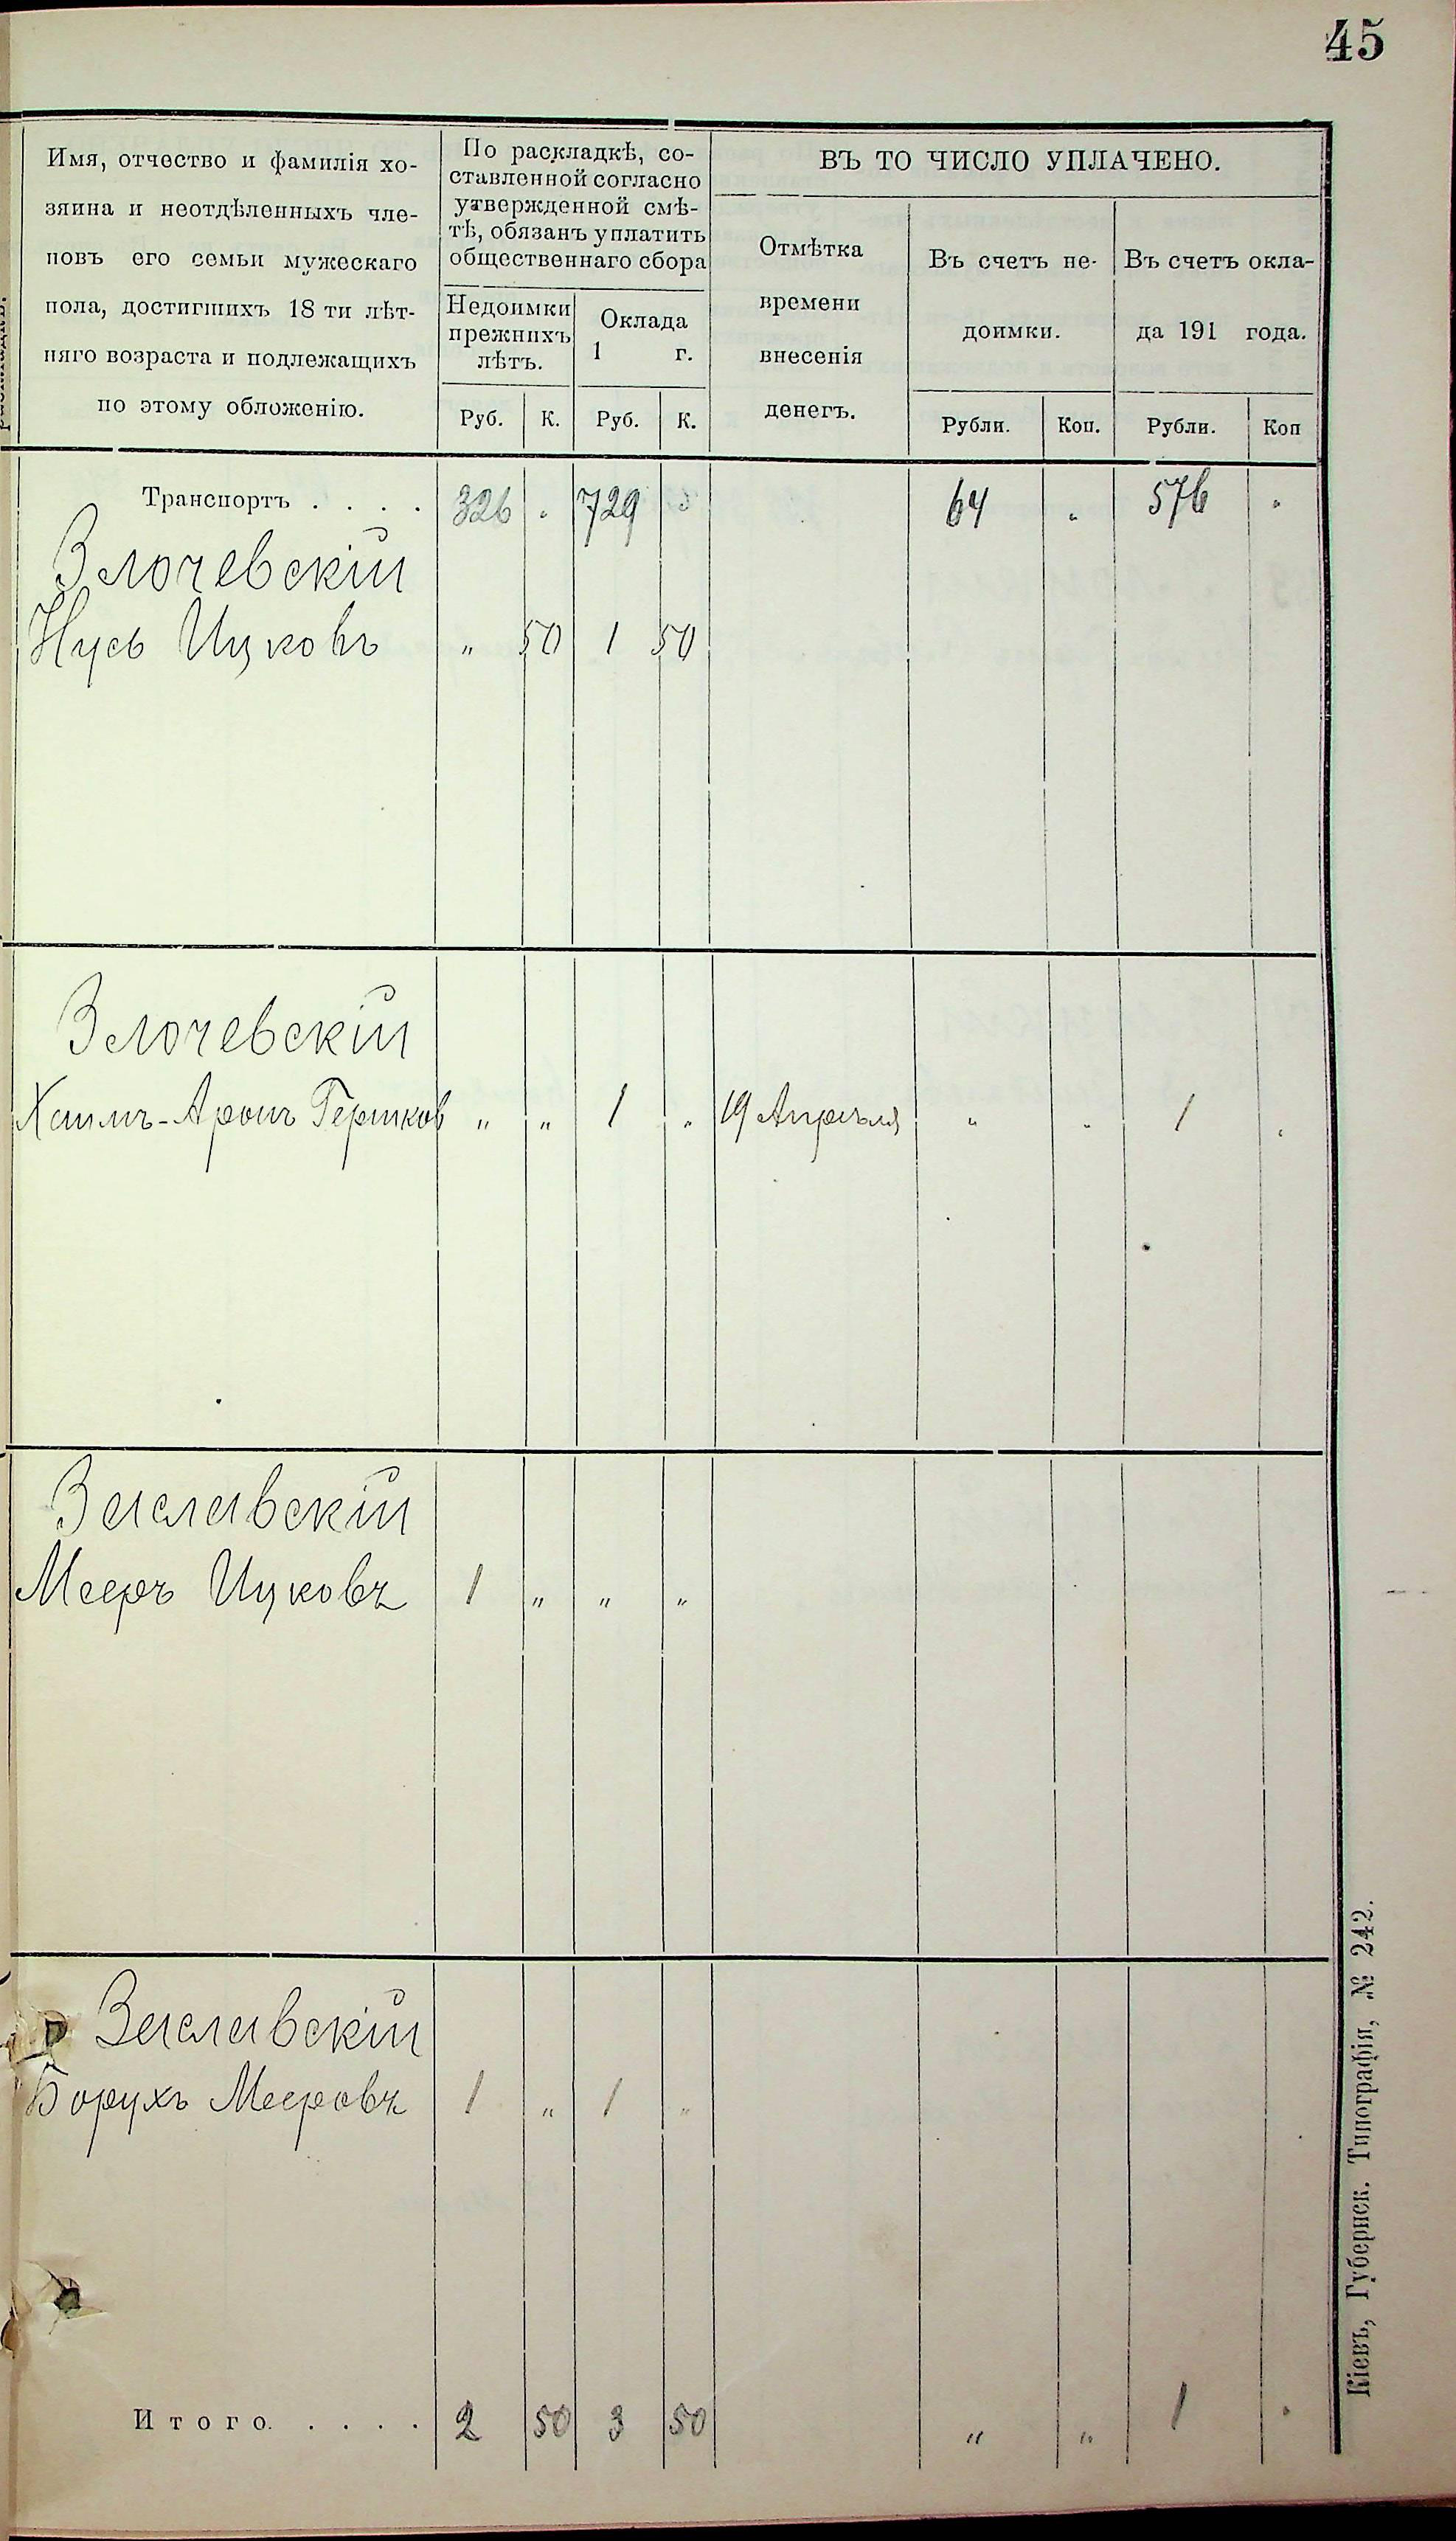 45
Имя, отчество и фамилія хо-
зяина и неотдѣленныхъ чле-
новъ его семьи мужескаго
пола, достигшихъ 18 ти лѣт-
няго возраста и подлежащихъ
по этому обложенію.
По раскладкѣ, со-
ставленной согласно
утвержденной смѣ-
тѣ, обязанъ уплатить
общественнаго сбора
Недоимки
прежнихъ
лѣтъ.
Оклада
1 г.
Руб. К. Руб. К.
ВЪ ТО ЧИСЛО УПЛАЧЕНО.
Отмѣтка
времени
внесенія
денегъ.
Въ счетъ не-
доимки.
Рубли. Коп.
Въ счетъ окла-
да 191 года.
Рубли. Коп
Транспортъ . . . . 326 " 729 " 64 " 576 "
Злочевскій
Нусь Ицковъ " 50 1 50
Злочевскій
Хаимъ-Аронъ Гершков " " 1 " 19 Апрѣля " " 1 "
Заславскій
Мееръ Ицковъ 1 " " "
Заславскій
Борухъ Мееровъ 1 " 1 "
Итого. . . . . 2 50 3 50 " " 1 "
Кіевъ, Губернск. Типографія, № 242.